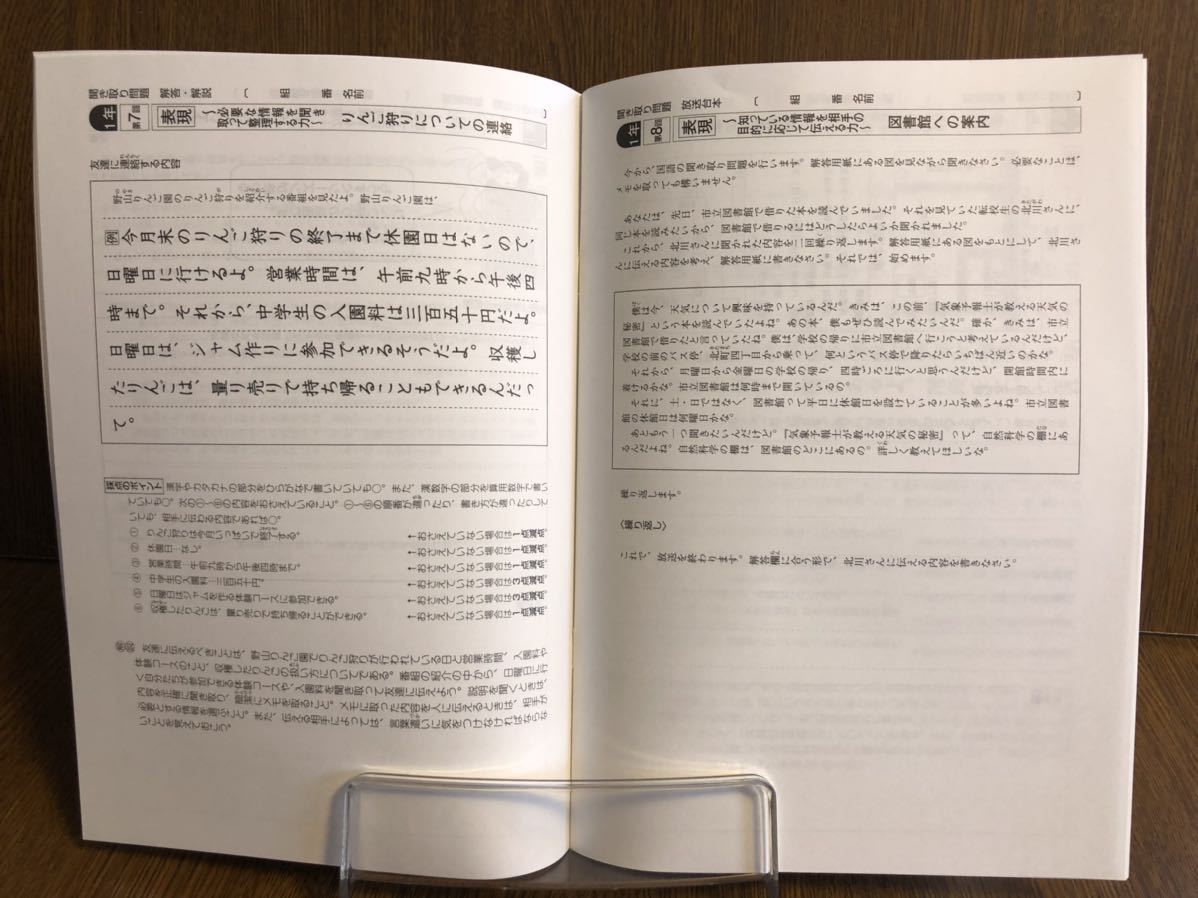 聞き取り問題 解答・解説 〔 組 番 名前 〕
1年
第7回
表現
〜必要な情報を聞き
取って整理する力〜
りんご狩りについての連絡
友達に連絡する内容
野山りんご園のりんご狩りを紹介する番組を見たよ。野山りんご園は、
例 今月末のりんご狩りの終了まで休園日はないので、
日曜日に行けるよ。営業時間は、午前九時から午後四
時まで。それから、中学生の入園料は三百五十円だよ。
日曜日は、ジャム作りに参加できるそうだよ。収穫し
たりんごは、量り売りで持ち帰ることもできるんだっ
て。
採点のポイント 漢字やカタカナの部分をひらがなで書いていても〇。また、漢数字の部分を算用数字で書い
ていても〇。次の①〜⑥の内容をおさえていること。①〜⑥の順番が違ったり、書き方が違ったりして
いても、相手に伝わる内容であれば〇。
① りんご狩りは今月いっぱいで終了する。 ↑おさえていない場合は1点減点。
② 休園日…なし。 ↑おさえていない場合は1点減点。
③ 営業時間…午前九時から午後四時まで。 ↑おさえていない場合は1点減点。
④ 中学生の入園料…三百五十円。 ↑おさえていない場合は3点減点。
⑤ 日曜日はジャムを作る体験コースに参加できる。 ↑おさえていない場合は3点減点。
⑥ 収穫したりんごは、量り売りで持ち帰ることができる。 ↑おさえていない場合は1点減点。
解説 友達に伝えるべきことは、野山りんご園でりんご狩りが行われている日と営業時間、入園料や
体験コースのこと、収穫したりんごの扱い方についてである。番組の紹介の中から、日曜日に行
く自分たちが参加できる体験コースや、入園料を聞き取って友達に伝えよう。説明を聞くときは、
内容を正確に聞き取り、簡潔にメモを取ること。メモに取った内容を人に伝えるときは、相手が
必要とする情報を選ぶこと。また、伝える相手によっては、言葉遣いに気をつけなければならな
いことを覚えておこう。
聞き取り問題 放送台本 〔 組 番 名前 〕
1年
第8回
表現
〜知っている情報を相手の
目的に応じて伝える力〜
図書館への案内
今から、国語の聞き取り問題を行います。解答用紙にある図を見ながら聞きなさい。必要なことは、
メモを取っても構いません。
あなたは、先日、市立図書館で借りた本を読んでいました。それを見ていた転校生の北川さんに、
同じ本を読みたいから、図書館で借りるにはどうしたらよいか聞かれました。
これから、北川さんに聞かれた内容を二回繰り返します。解答用紙にある図をもとにして、北川さ
んに伝える内容を考え、解答用紙に書きなさい。それでは、始めます。
僕は今、天気について興味を持っているんだ。きみは、この前『気象予報士が教える天気の
秘密』という本を読んでいたよね。あの本、僕もぜひ読んでみたいんだ。確か、きみは、市立
図書館で借りたと言っていたね。僕は、学校の帰りに市立図書館へ行こうと考えているんだけど、
学校の前のバス停、北町四丁目から乗って、何というバス停で降りたらいちばん近いのかな。
それから、月曜日から金曜日の学校の帰り、四時ごろに行くと思うんだけど、開館時間内に
着けるかな。市立図書館は何時まで開いているの。
それに、土・日ではなく、図書館って平日に休館日を設けていることが多いよね。市立図書
館の休館日は何曜日かな。
あともう一つ聞きたいんだけど。『気象予報士が教える天気の秘密』って、自然科学の棚にあ
るんだよね。自然科学の棚は、図書館のどこにあるの。詳しく教えてほしいな。
繰り返します。
〈繰り返し〉
これで、放送を終わります。解答欄に合う形で、北川さんに伝える内容を書きなさい。